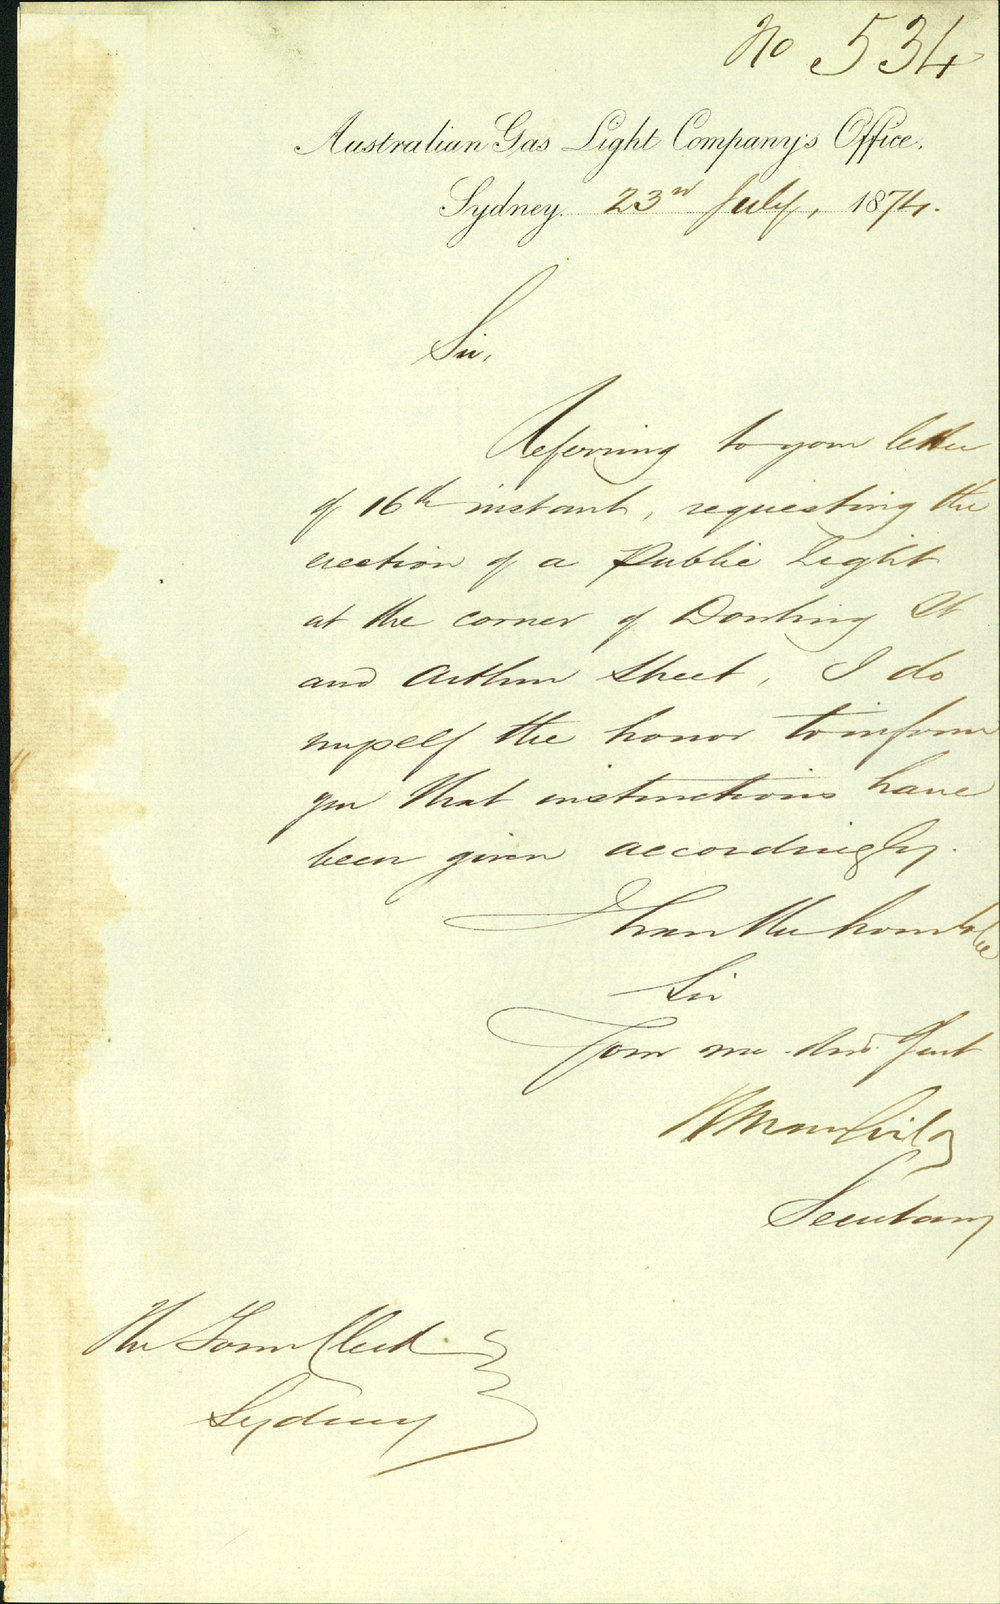 No 534
Australian Gas Light Company's Office.
Sydney. 23rd July, 1874.
Sir,
Referring to your letter
of 16th instant, requesting the
erection of a Public Light
at the corner of Dowling St
and Arthur Street, I do
myself the honor to inform
you that instructions have
been given accordingly.
I have the honor to be
Sir
Your mo. Obd. Servt
Secretary
The Town Clerk
Sydney